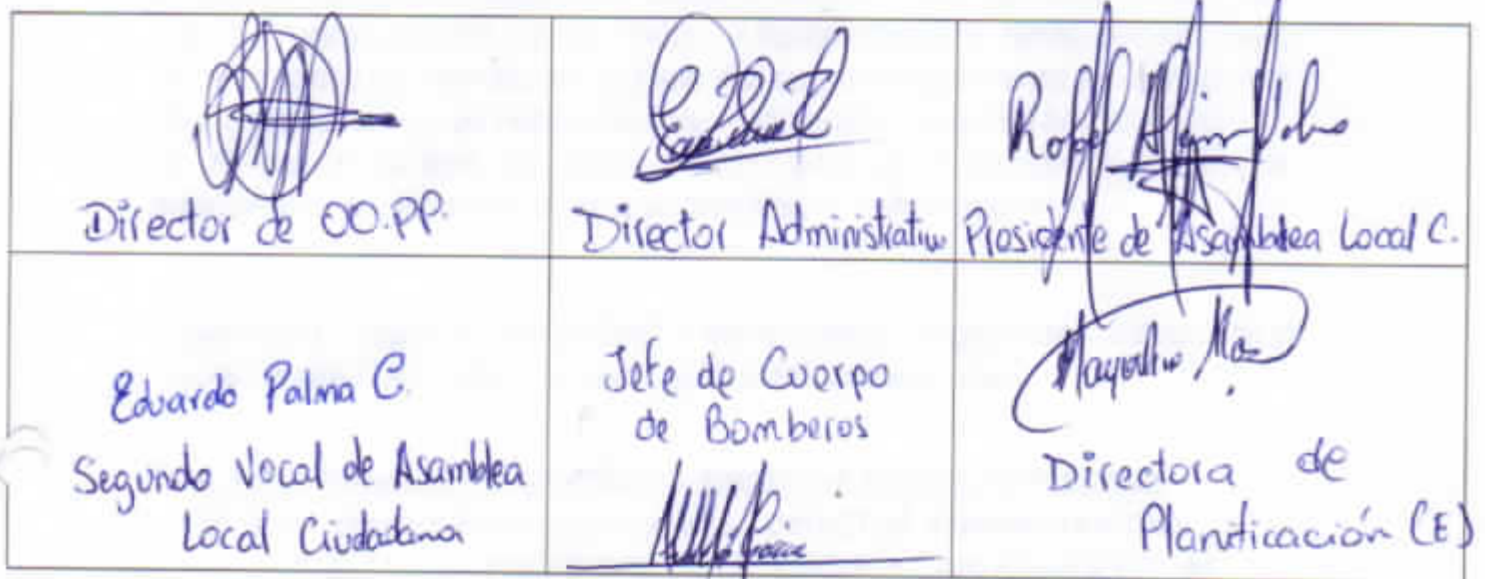 Director de OO.PP.
Director Administrativo
Presidente de Asamblea Local C.
Eduardo Palma C.
Segundo Vocal de Asamblea
Local Ciudadana
Jefe de Cuerpo
de Bomberos
Directora de
Planificación (E)